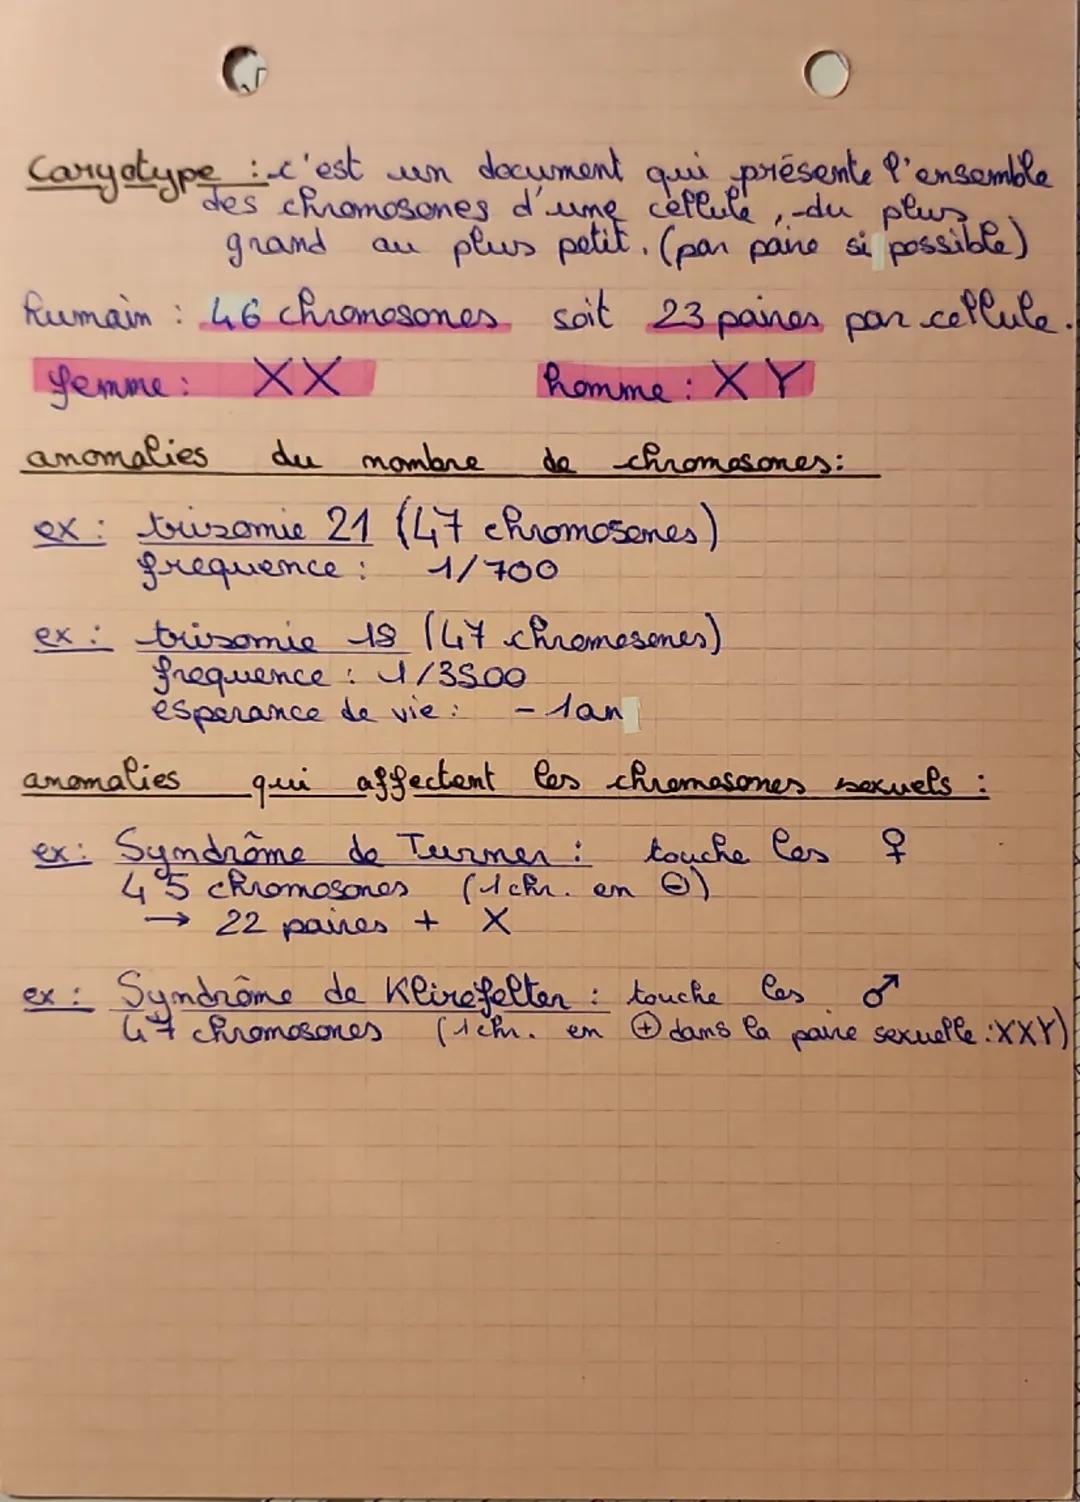 Caryotype : c'est un document qui présente l'ensemble
des chromosones d'une cellule, du plus
grand au plus petit. (par paire si possible)
humain : 46 chromosones soit 23 paires par cellule.
femme : XX homme : XY
anomalies du nombre de chromosones :
ex : trisomie 21 (47 chromosones)
frequence : 1/700
ex : trisomie 18 (47 chromosones)
frequence : 1/3500
esperance de vie : - 1an
anomalies qui affectent les chromosones sexuels :
ex : Syndrôme de Turner : touche les ♀
45 chromosones (1 chr. en ⊖)
→ 22 paires + X
ex : Syndrôme de Klirefelter : touche les ♂
47 chromosones (1 chr. en ⊕ dans la paire sexuelle : XXY)